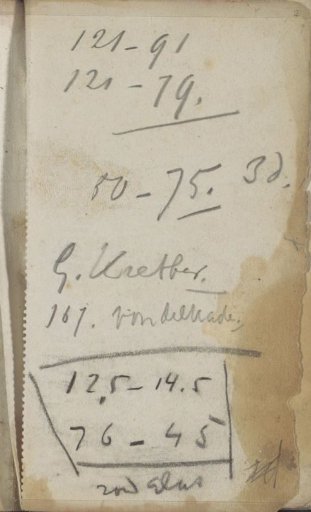 121-91
121-79.
50-75. 3d.
G. Kretber.
167. Vondelkade.
12,5-14.5
76-45